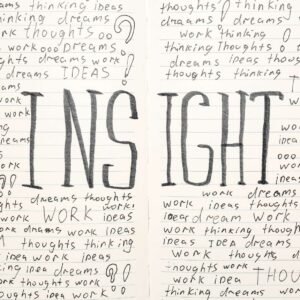 thoughts thinking ideas
thinking dreams
work THOUGHTS ??
work DREAMS !
thoughts dreams work
dreams IDEAS
thoughts ! thinking
dreams ideas
work thinking
thinking THoughts
dreams ideas thoughts
thoughts thinking
INSIGHT
work
dreams thoughts
WORK ideas
work dreams work ideas
thoughts thinking
idea work ideas
idea dreams ??
work ideas
thoughts idea work
work dreams
ideas thoughts work
idea dream WORK
work thinking thoughts
ideas IDEA dreams
work ideas
thoughts work
idea work THOU
thinking dreams work